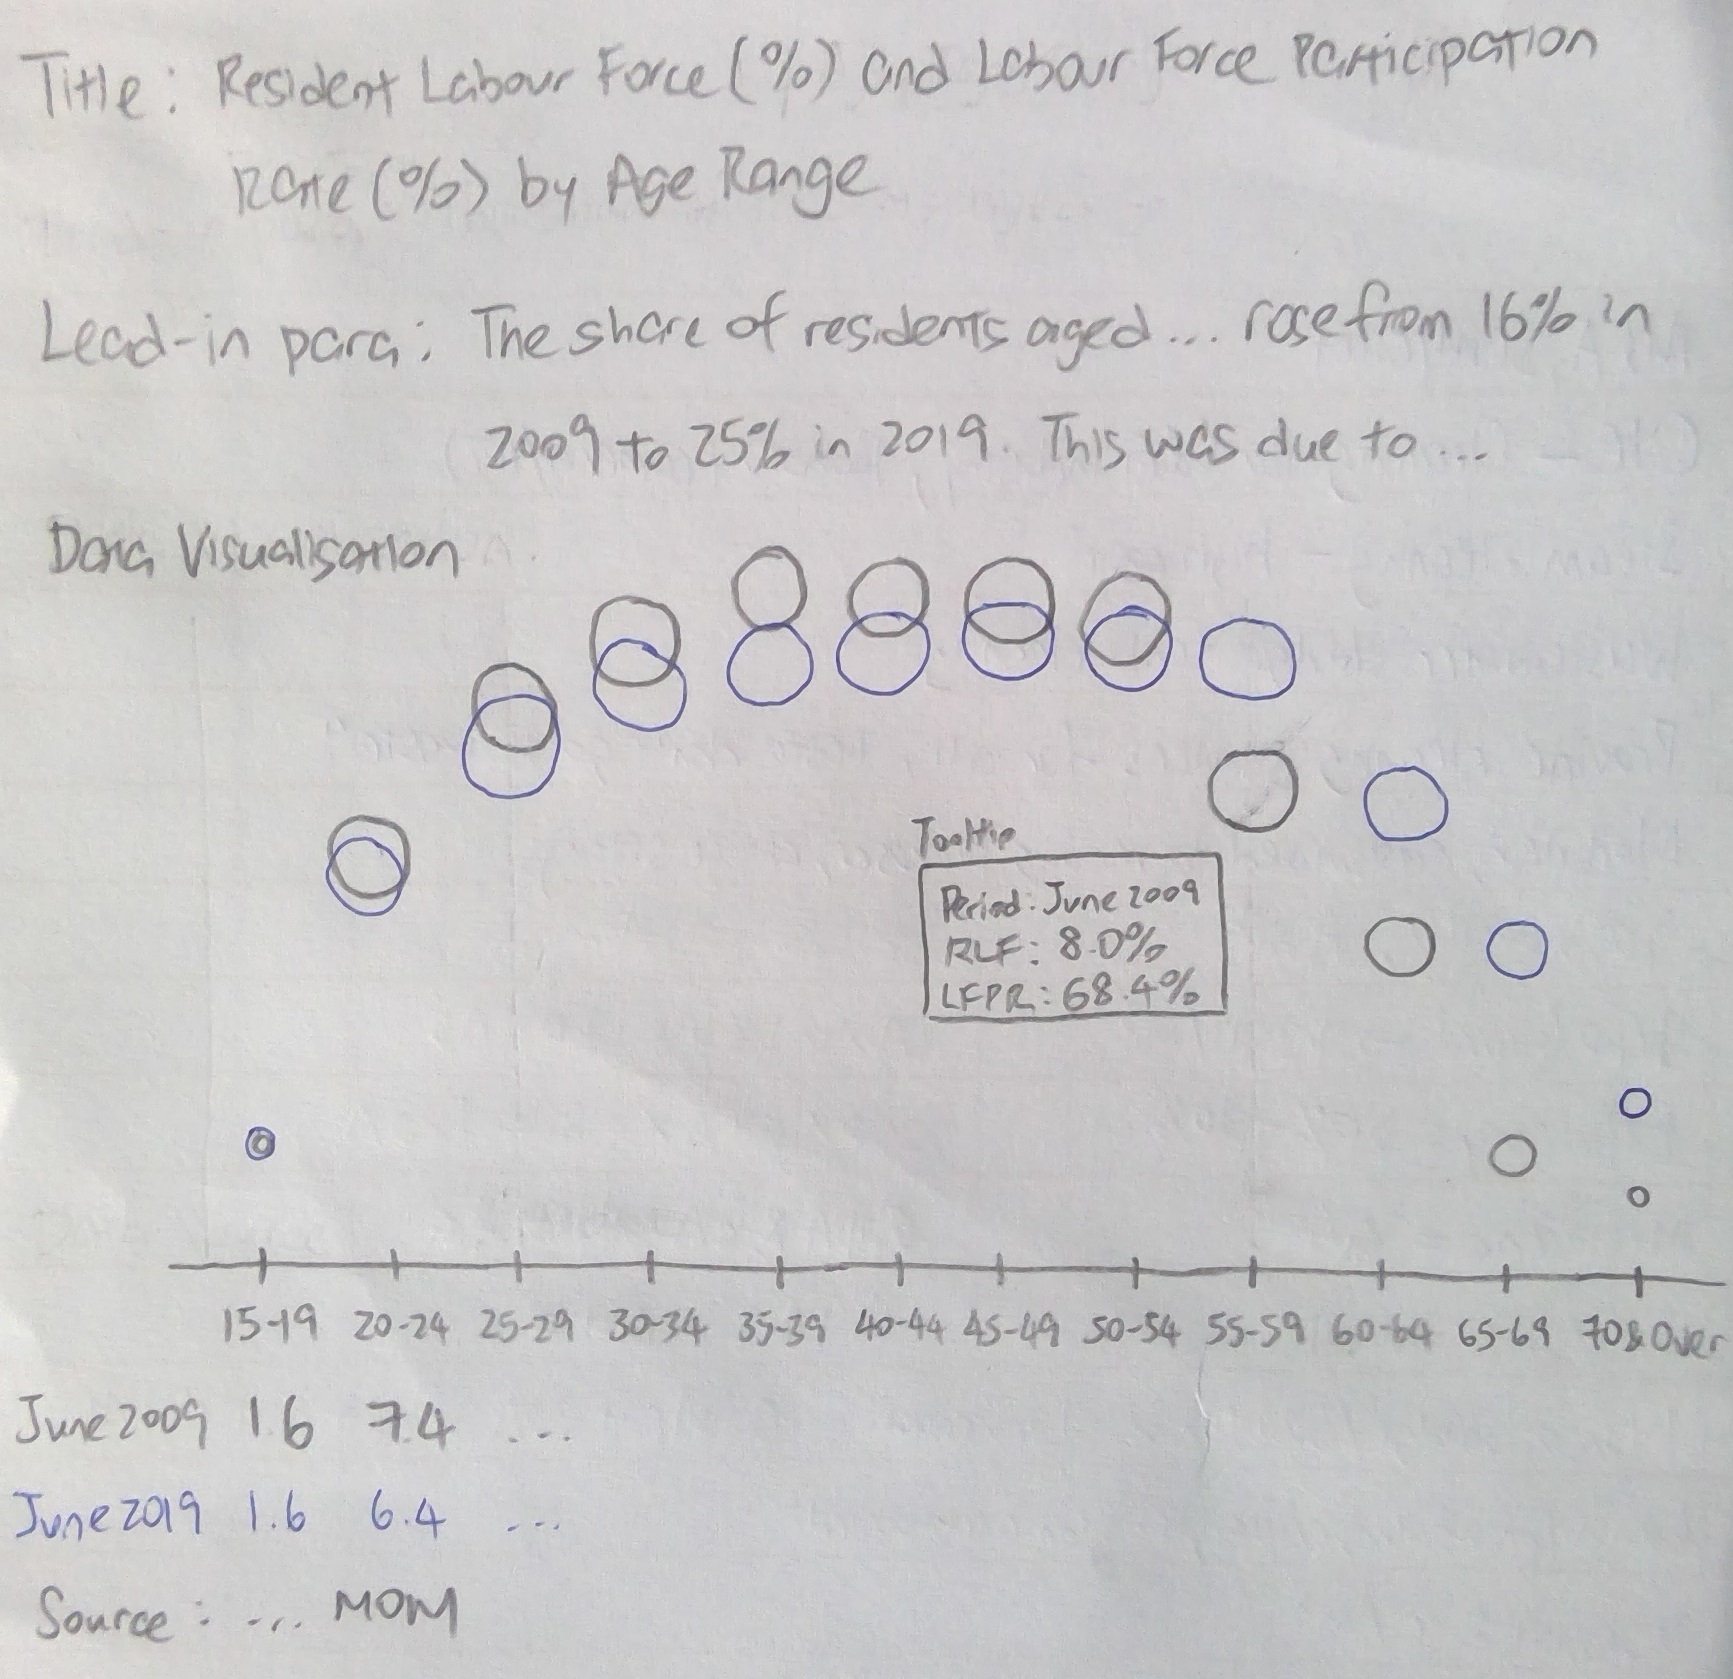 Title: Resident Labour Force (%) and Labour Force Participation
Rate (%) by Age Range
Lead-in para: The share of residents aged... rose from 16% in
2009 to 25% in 2019. This was due to...
Data Visualisation
Tooltip
Period: June 2009
RLF: 8.0%
LFPR: 68.4%
15-19 20-24 25-29 30-34 35-39 40-44 45-49 50-54 55-59 60-64 65-69 70 & Over
June 2009 1.6 7.4 ...
June 2019 1.6 6.4 ...
Source: ... MOM